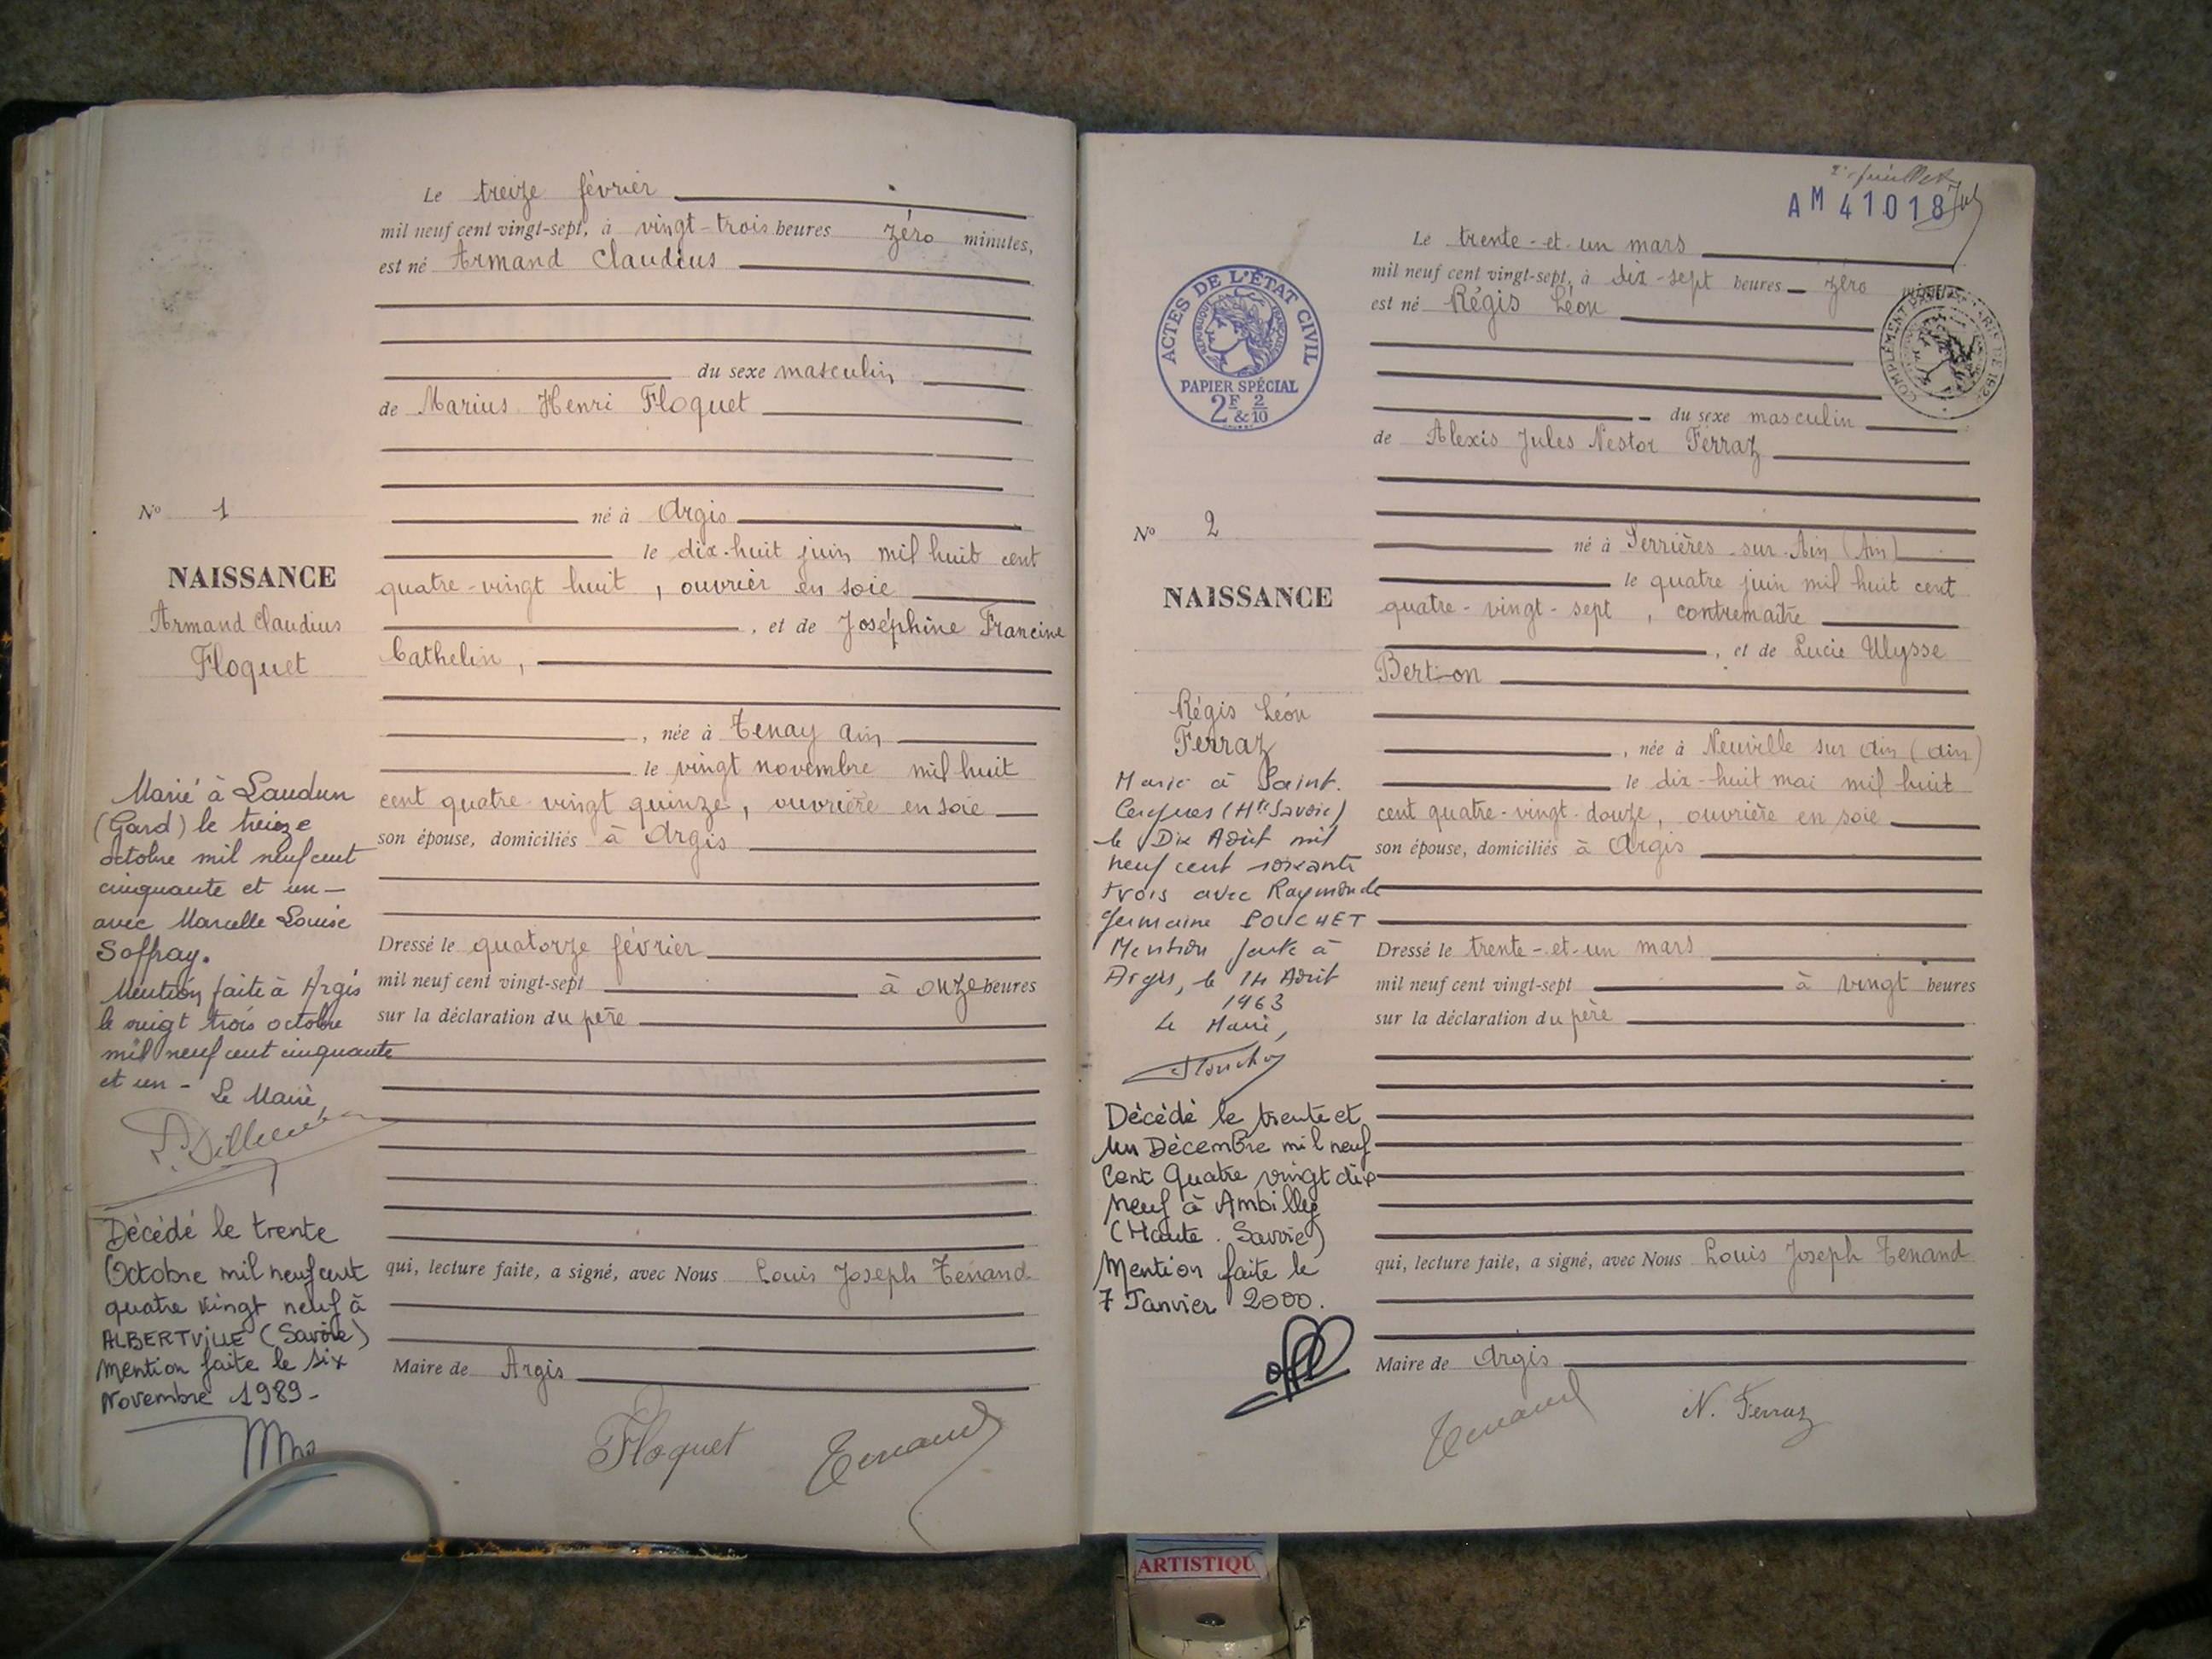 Le treize février
mil neuf cent vingt-sept, à vingt-trois heures zéro minutes,
est né Armand Claudius
du sexe masculin
de Marius Henri Floquet
né à Argis
le dix-huit juin mil huit cent
quatre-vingt huit, ouvrier en soie
, et de Joséphine Francine
Cathelin,
, née à Tenay Ain
le vingt novembre mil huit
cent quatre-vingt quinze, ouvrière en soie
son épouse, domiciliés à Argis
Dressé le quatorze février
mil neuf cent vingt-sept à onze heures
sur la déclaration du père
qui, lecture faite, a signé, avec Nous Louis Joseph Tenand
Maire de Argis
Floquet Tenand
No 1
NAISSANCE
Armand Claudius
Floquet
Marié à Laudun
(Gard) le treize
octobre mil neuf cent
cinquante et un -
avec Marcelle Louise
Soffray.
Mention faite à Argis
le vingt trois octobre
mil neuf cent cinquante
et un - Le Maire,
Décédé le trente
Octobre mil neuf cent
quatre vingt neuf à
ALBERTVILLE (Savoie)
Mention faite le six
Novembre 1989-
2e juillet
AM 41018
ACTES DE L'ÉTAT CIVIL
RÉPUBLIQUE FRANÇAISE
PAPIER SPÉCIAL
2F & 2/10
Le trente-et-un mars
mil neuf cent vingt-sept, à dix-sept heures zéro minutes
est né Régis Léon
du sexe masculin
de Alexis Jules Nestor Ferraz
né à Serrières-sur-Ain (Ain)
le quatre juin mil huit cent
quatre-vingt-sept, contremaître
, et de Lucie Ulysse
Berton
, née à Neuville sur Ain (Ain)
le dix-huit mai mil huit
cent quatre-vingt-douze, ouvrière en soie
son épouse, domiciliés à Argis
Dressé le trente-et-un mars
mil neuf cent vingt-sept à vingt heures
sur la déclaration du père
qui, lecture faite, a signé, avec Nous Louis Joseph Tenand
Maire de Argis
Tenand N. Ferraz
No 2
NAISSANCE
Régis Léon
Ferraz
Marié à Saint.
Cergues (Hte Savoie)
le Dix Août mil
neuf cent soixante
trois avec Raymonde
Germaine POUCHET
Mention faite à
Argis, le 14 Août
1963
Le Maire,
Décédé le trente et
un Décembre mil neuf
Cent Quatre vingt dix
neuf à Ambilly
(Haute-Savoie)
Mention faite le
7 Janvier 2000.
ARTISTIQU